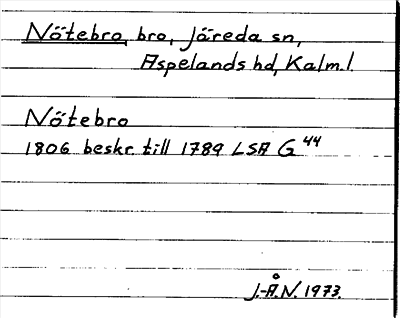 Nötebro, bro, Järeda sn,
Aspelands hd, Kalm.l.
Nötebro
1806 beskr. till 1789 LSA G 44
J.-Å.N. 1973.